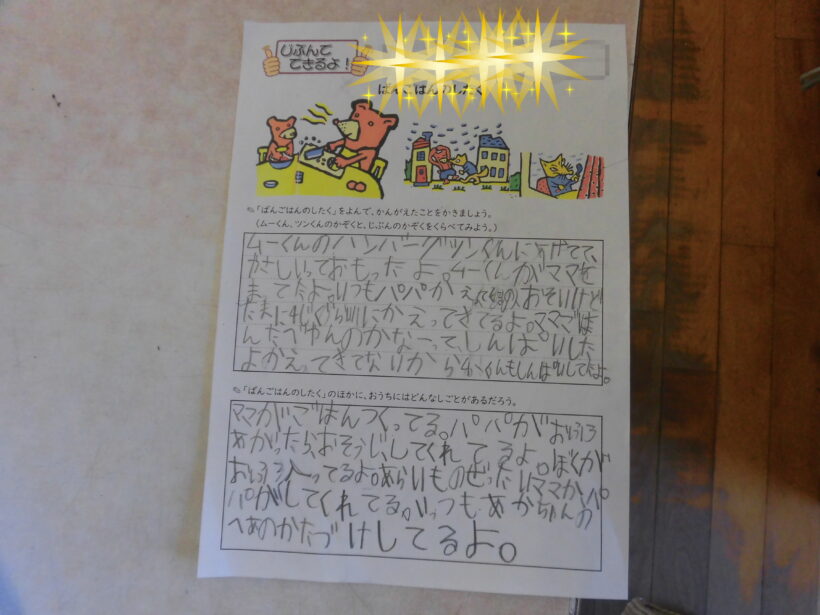 じぶんで
できるよ!
ばんごはんのしたく
「ばんごはんのしたく」をよんで、かんがえたことをかきましょう。
(ムーくん、ツンくんのかぞくと、じぶんのかぞくをくらべてみよう。)
ムーくんのハンバーグツンくんにあげてて、
やさしいっておもったよ。ムーくんがママを
まってたよ。いつもパパが おそいけど
たまに4じぐらいにかえってきてるよ。ママごは
んたべやんのかなーって、しんぱいした
よかえってきてないから くんもしんぱいしてたよ。
「ばんごはんのしたく」のほかに、おうちにはどんなしごとがあるだろう。
ママがごはんつくってる。パパがおふろ
あがったら、おそうじ、してくれてるよ。ぼくが
おふろ入ってるよ。あらいものぜったいママかパ
パがしてくれてる。いっつもあかちゃんの
へあのかたづけしてるよ。